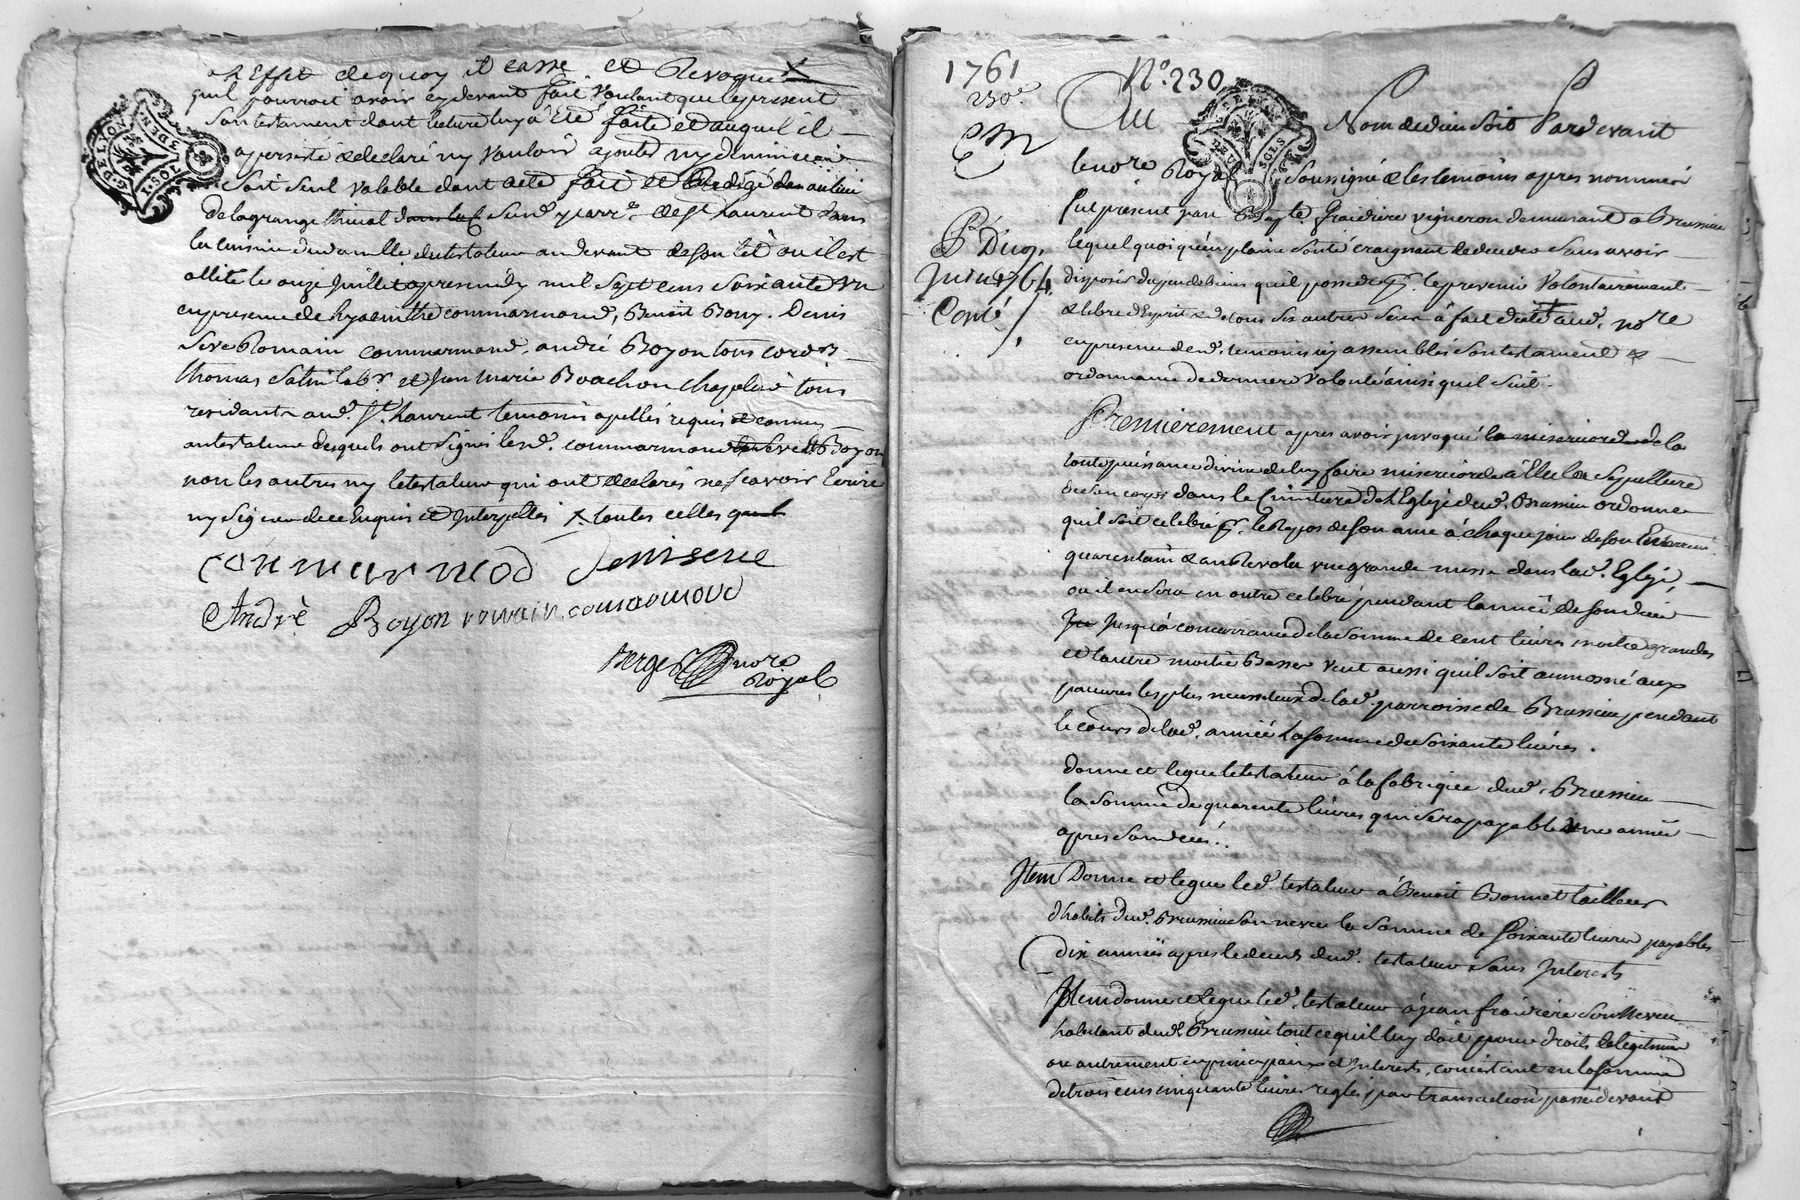 Effet dequoy il casse et Revoque X
quil pourroit avoir cydevant fait Voulant que le present
Son testament dont lecture luy á Eté faite et auquel il
a persisté & declaré ny Vouloir ajouter ny diminuer
Soit Seul valable dont acte fait et Redigé
de lagrange Sud. parr.e de St Laurent dans
la cuisine du testateur au devant de son lit ou il est
allité le onze Juillet apresmidy mil Sept cens Soixante Un
en presence de hyacinthe commarmond, Benoit Bony, Denis
Seve Romain commarmond, andré Boyon tous cord.rs
thomas lab.r et Jean Marie Bouchon chapelier tous
residants aud. St. Laurent temoins apellés requis et connus
au testateur desquels ont Signé lesd. commarmond Seve et Boyon
non les autres ny le testateur qui ont declarés ne Scavoir Ecrire
ny Signer de ce Enquis et Interpellés X toutes celles
commarmod Denis seve
André Boyon romain comarmond
Berger nore
Royal
1761
230e
No. 230
G. DE LYON
DEN.
1. SOL
Au Nom de dieu Soit Pardevant
le nore Royal Soussigné & les temoins apres nommés
fut present vigneron demeurant a Brussieu
lequel quoiqu'en plaine Santé craignant de deceder Sans avoir
disposé du peu de biens quil possede p. le prevenir Volontairement
& libre d'Esprit & de tous Ses autres Sens á fait dicté aud. nore
en presence desd. temoins icy assemblés Son testament &
ordonnance de derniere volonté ainsi quil Suit.
Premierement apres avoir invoqué la misericorde de la
toute puissance divine de luy faire misericorde á Elu la Sepulture
de Son corps dans le Cimetiere de l'Eglize dud. Brussieu ordonne
quil Soit celebré p. le Repos de Son ame á chaque jour de Son Enterrement
quarantain & au bout de l'an une grande messe dans lad. Eglize,
ou il en Sera en outre celebré pendant lannée de Son deces
Jusqu'á concurrance de la Somme de cent livres moitie grandes
et lautre moitié Basses Veut aussi quil Soit aumoné aux
pauvres les plus necessiteux de lad. parroisse de Brussieu pendant
le cours de lad. année La Somme de Soixante livres.
donne et legue le testateur á la fabrique dud. Brussieu
la Somme de quarente livres qui Sera payable une année
apres Son deces.
Item Donne et legue led. testateur á Benoit Bonnet tailleur
d'habits dud. Brussieu Son neveu la Somme de Soixante livres payables
dix années apres le deces dud. testateur Sans Interests
Item donne et legue led. testateur á Jean fraidiere Son Neveu
habitant dud. Brussieu tout ce quil luy doit pour droits de legitime
ou autrement en principaux et Interests, consistant en la Somme
de trois cens cinquante livres reglés par transaction passé devant